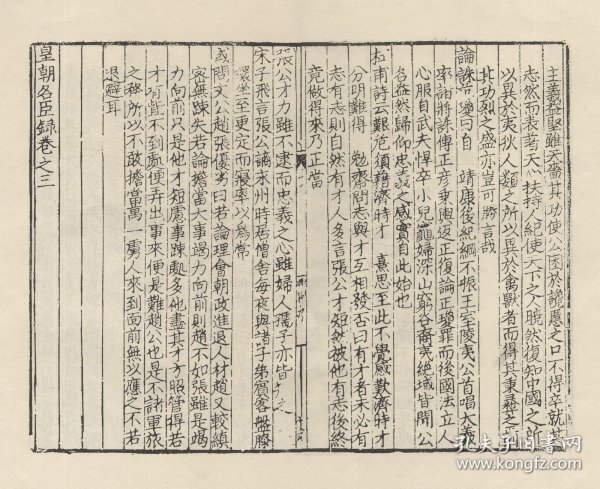 主義益堅雖天嗇其功使公困於讒慝之口不得卒就其
志然而表著天心扶持人紀使天下之人曉然復知中國之所
以異於夷狄人類之所以異於禽獸者而得其秉彝之正
北功烈之盛亦豈可勝言哉
論誅吕瓊曰 靖康後紀綱不振王室陵夷公首唱大義
率諸將誅傳正彦乘輿返正復論正瓊罪而後國法立人
心服自武夫悍卒小兒竈婦深山窮谷裔夷絶域皆聞公
名盎然歸仰忠義之感實自此始也
杜甫詩云艱危須藉濟時才 熹思至此不覺感歎濟時才
分明難得 勉齋問志與才互相發否曰有才者未必有
志有志則自然有才人多言張公才短然被他有志後終
竟做得來乃正當
張公才力雖不逮而忠義之心雖婦人孺子亦皆
宋子飛言張公謫永州時居僧舍每夜與諸子弟賓客盤膝
環坐至更定而寢率以為常
或問文公趙張優劣曰若論理會朝政進退人材趙又較縝
密無踈失若論擔當大事竭力向前則趙不如張雖是竭
力向前只是他才短處事踈點多他盡其才方照管得若
才有些不到處便弄出事來便是難趙公也是不諸軍旅
之務所以不敢擔當萬一虜人來到面前無以應之不若
退避耳
皇朝名臣録卷之三
孔夫子旧书网
www.kongfz.com